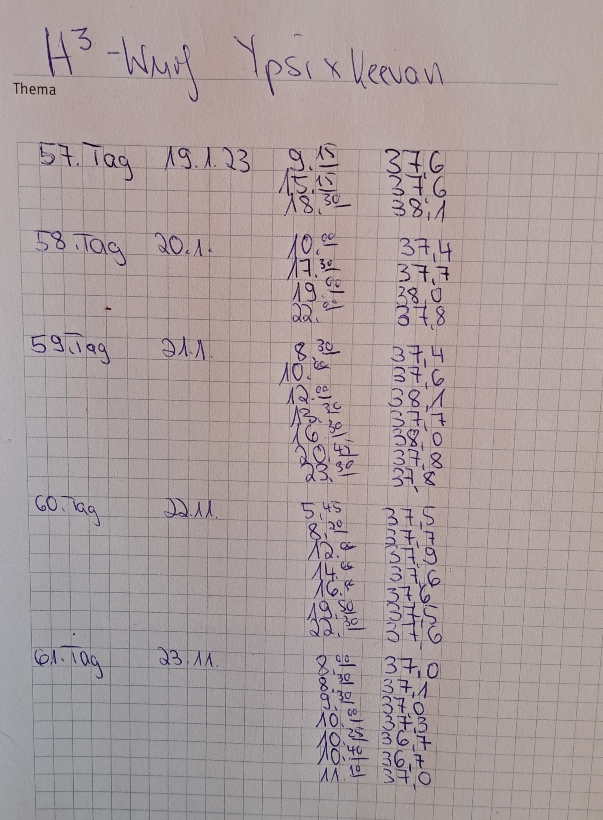 H³-Wurf Ypsi x Keevan
Thema
57. Tag 19.1.23 9.15 37,6
15.15 37,6
18.30 38,1
58. Tag 20.1. 10.00 37,4
17.30 37,7
19.00 38,0
22.00 37,8
59. Tag 21.1. 8.30 37,4
10.00 37,6
12.00 38,1
13.30 37,7
16.30 38,0
20.45 37,8
23.30 37,8
60. Tag 22.11. 5.45 37,5
8.30 37,7
12.00 37,9
14.00 37,6
16.00 37,6
19.30 37,5
22.30 37,6
61. Tag 23.11. 8.00 37,0
8.30 37,1
9.30 37,0
10. 37,3
10.25 36,7
10.40 36,7
11.10 37,0